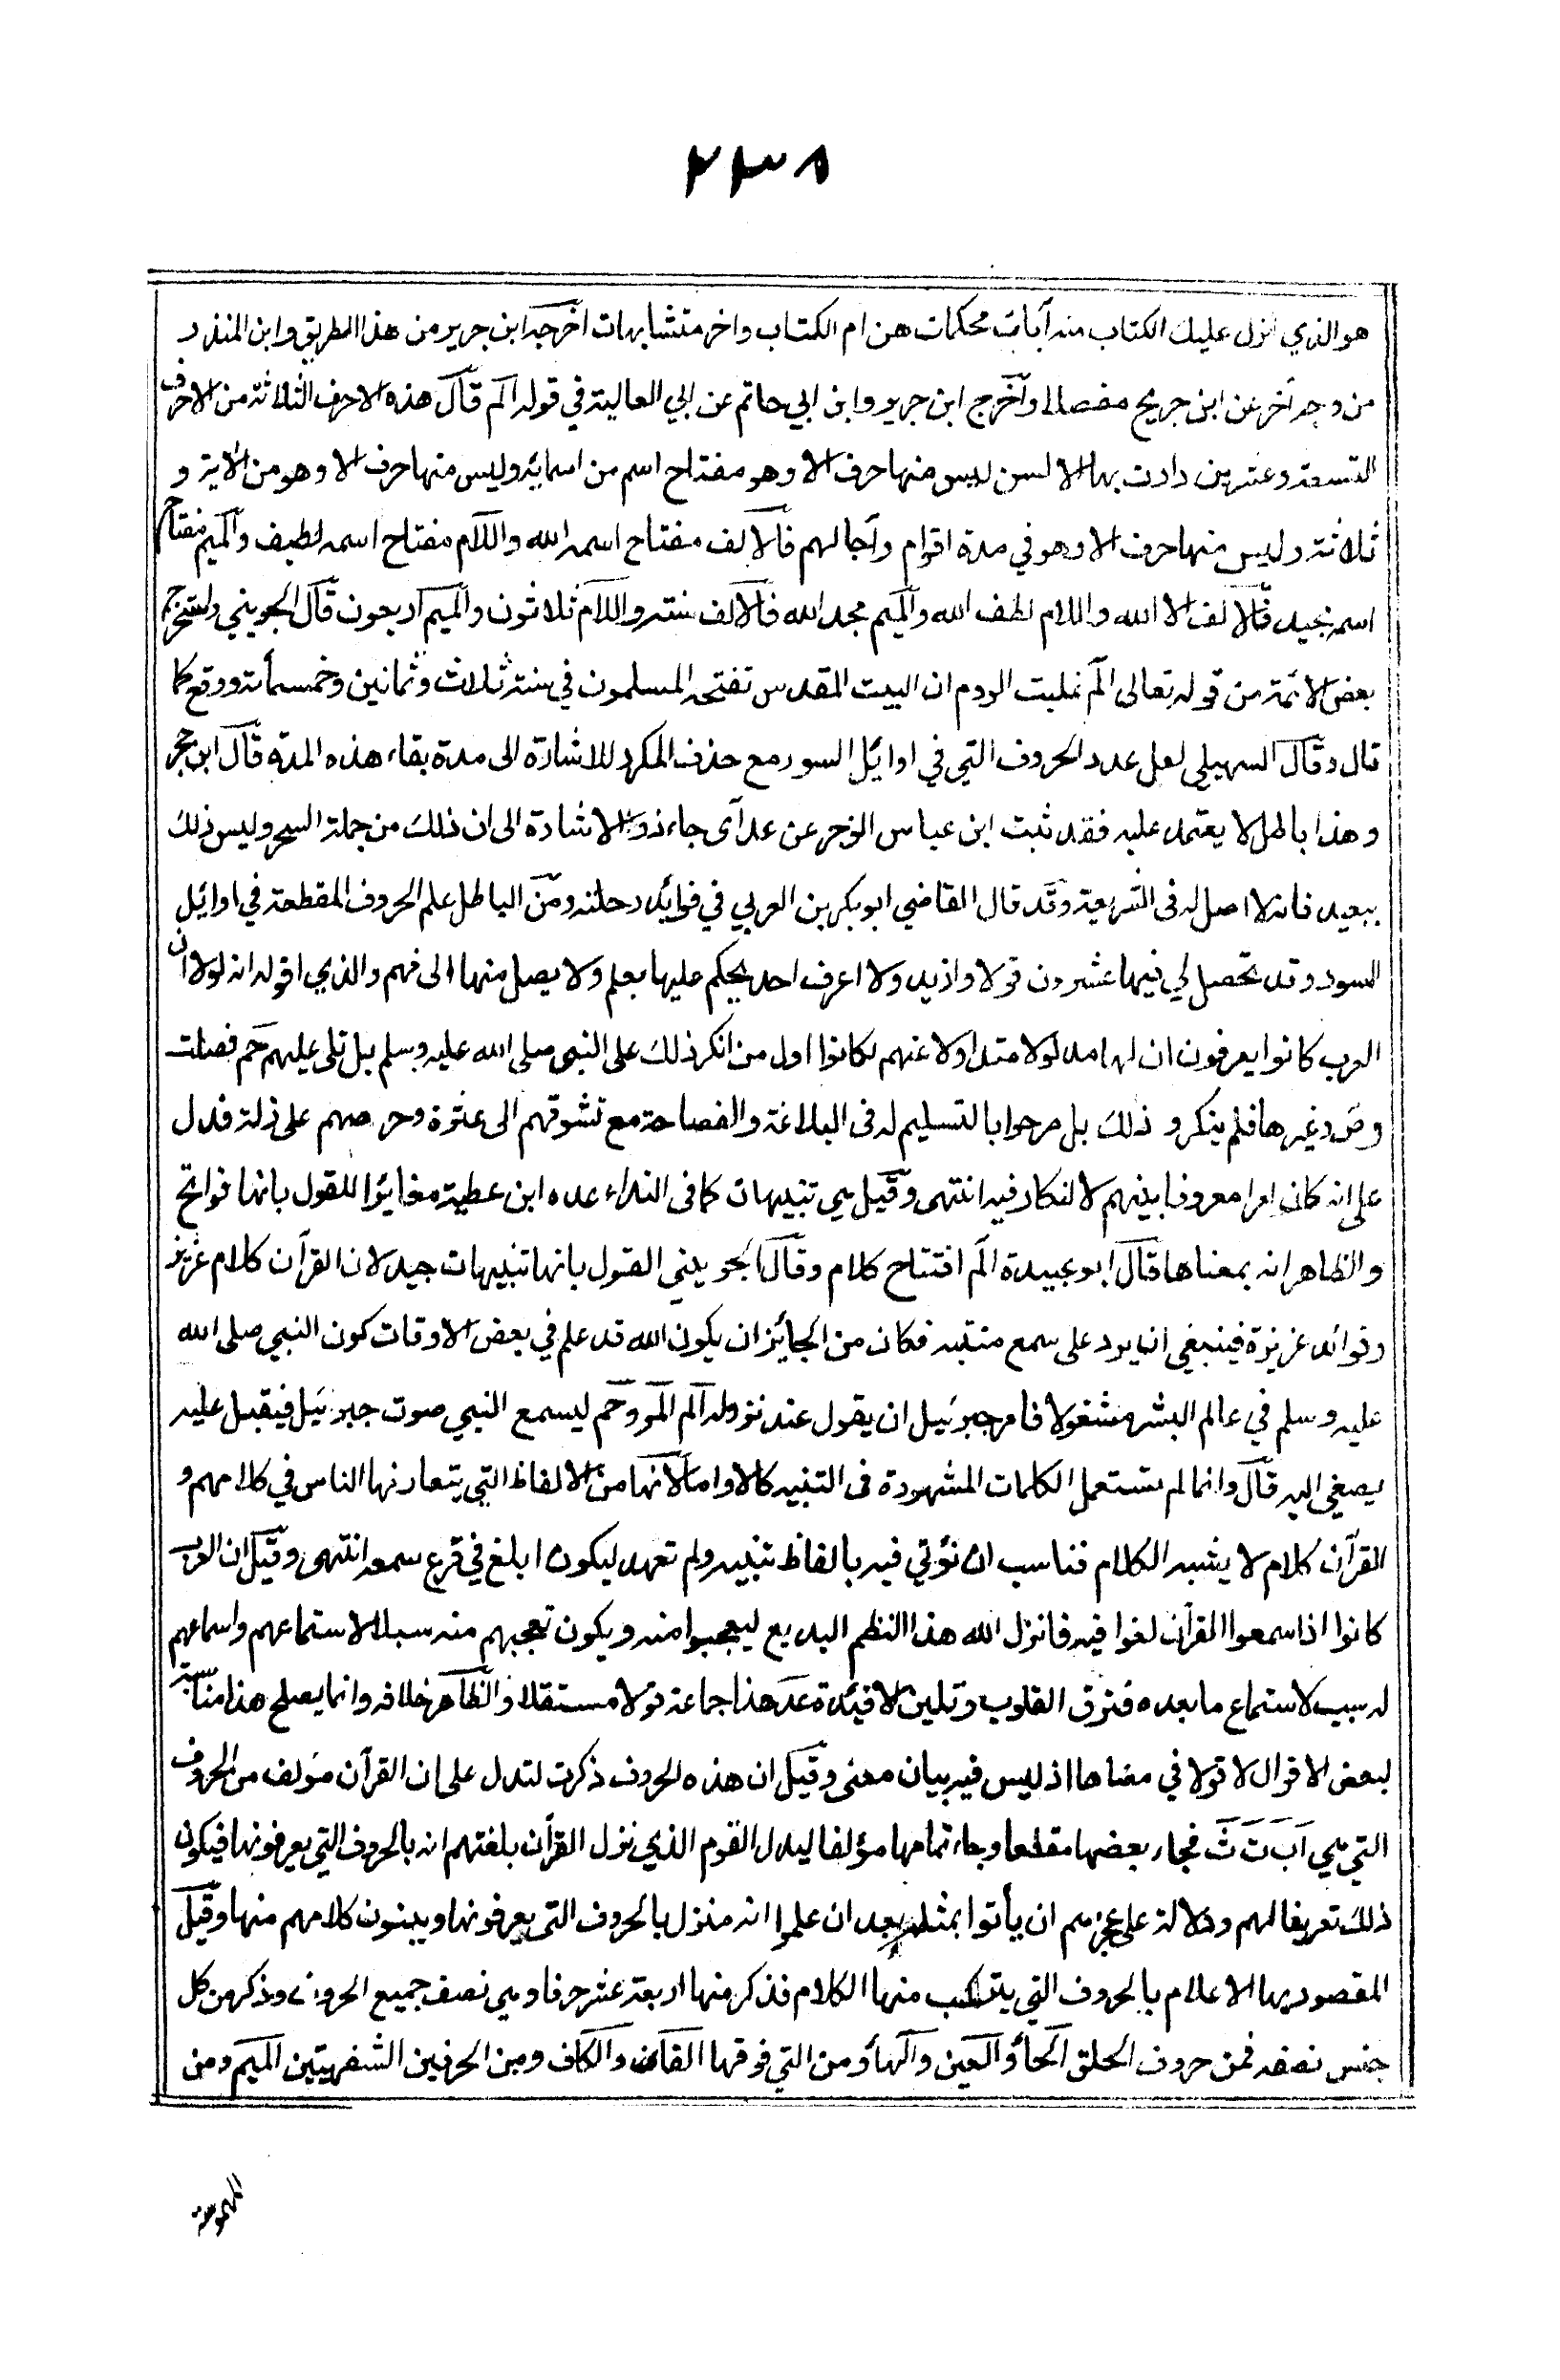 ٢٣٨
هو الذي انزل عليك الكتاب منه آيات محكمات هن ام الكتاب واخر متشابهات اخرجه ابن جرير من هذا الطريق وابن المنذر
من وجه آخر عن ابن جريح مفصلا واخرج ابن جرير وابن ابي حاتم عن ابي العالية في قوله الم قال هذه الاحرف الثلاثة من الاحرف
التسعة وعشرين دارت بها الالسن ليس منها حرف الا وهو مفتاح اسم من اسمايه وليس منها حرف الا وهو من الآية و
ثلاثة وليس منها حرف الا وهو في مدة اقوام وآجالهم فالالف مفتاح اسمه الله واللام مفتاح اسمه لطيف والميم مفتاح
اسمه مجيد فالالف الا الله واللام لطف الله والميم مجد الله فالالف ستة واللام ثلاثون والميم اربعون قال الجويني واستخرج
بعض الائمة من قوله تعالى الم غلبت الروم ان البيت المقدس تفتحه المسلمون في سنة ثلاث وثمانين وخمسمأة ووقع كما
قال وقال السهيلي لعل عدد الحروف التي في اوايل السور مع حذف المكرر للاشارة الى مدة بقاء هذه المدة قال ابن حجر
وهذا باطل لا يعتمد عليه فقد ثبت ابن عباس الزجر عن عد آى جاء ذو الاشارة الى ان ذلك من جملة السحر وليس ذلك
ببعيد فانه لا اصل له فى الشريعة وقد قال القاضي ابو بكر بن العربي في فوايد رحلته ومن الباطل علم الحروف المقطعة في اوايل
السور وقد تحصل لي فيها عشرون قولا وازيد ولا اعرف احد يحكم عليها بعلم ولا يصل منها الى فهم والذي اقوله انه لولا ان
العرب كانوا يعرفون ان لها مدلولا متداولا عنهم لكانوا اول من انكر ذلك على النبي صلى الله عليه وسلم بل تلى عليهم حم فصلت
وص وغيرها فلم ينكرو ذلك بل صرحوا بالتسليم له فى البلاغة والفصاحة مع تشوقهم الى عثرة وحرصهم على زلة فدل
على انه كان امرا معروفا بينهم لا انكار فيه انتهى وقيل هي تنبيهات كما فى النداء عده ابن عطية مغايرا للقول بانها فواتح
والظاهر انه بمعناها قال ابو عبيدة الم افتتاح كلام وقال الجويني القول بانها تنبيهات جيد لان القرآن كلام عزيز
وفوائد عزيزة فينبغي ان يرد على سمع منتبه فكان من الجايز ان يكون الله قد علم في بعض الاوقات كون النبي صلى الله
عليه وسلم في عالم البشر مشغولا فامر جبرئيل ان يقول عند نزوله الم المر وحم ليسمع النبي صوت جبرئيل فيقبل عليه
يصغي اليه قال وانما لم تستعمل الكلمات المشهورة فى التنبيه كالا واما لانها من الالفاظ التي يتعارفها الناس في كلامهم و
القرآن كلام لا يشبه الكلام فناسب ان نؤتي فيه بالفاظ تنبيه ولم تعهد ليكون ابلغ في قرع سمعه انتهى وقيل ان العرب
كانوا اذا سمعوا القرآن لغوا فيه فانزل الله هذا النظم البديع ليعجبوا منه ويكون تعجبهم منه سببا لاستماعهم واسماعهم
له سبب لاستماع ما بعده فترق القلوب وتلين الافيئدة عد هذا جماعة قولا مستقلا والظاهر خلافه وانما يصلح هذا مناسبة
لبعض الاقوال لا قولا في معناها اذ ليس فيه بيان معنى وقيل ان هذه الحروف ذكرت لتدل على ان القرآن مؤلف من الحروف
التي هي ا ب ت ث فجاء بعضها مقطعا وجاء تمامها مؤلفا ليدل القوم الذي نزل القرآن بلغتهم انه بالحروف التي يعرفونها فيكون
ذلك تعريفا لهم ودلالة على عجزهم ان يأتوا بمثله بعد ان علموا انه منزل بالحروف التى يعرفونها ويبنون كلامهم منها وقيل
المقصود بها الاعلام بالحروف التي يتركب منها الكلام فذكر منها اربعة عشر حرفا وهي نصف جميع الحروف وذكر من كل
جنس نصفه فمن حروف الحلق الحأ والعين والهأ ومن التي فوقها القاف والكاف ومن الحرفين الشفهيتين الميم ومن
المهموسة